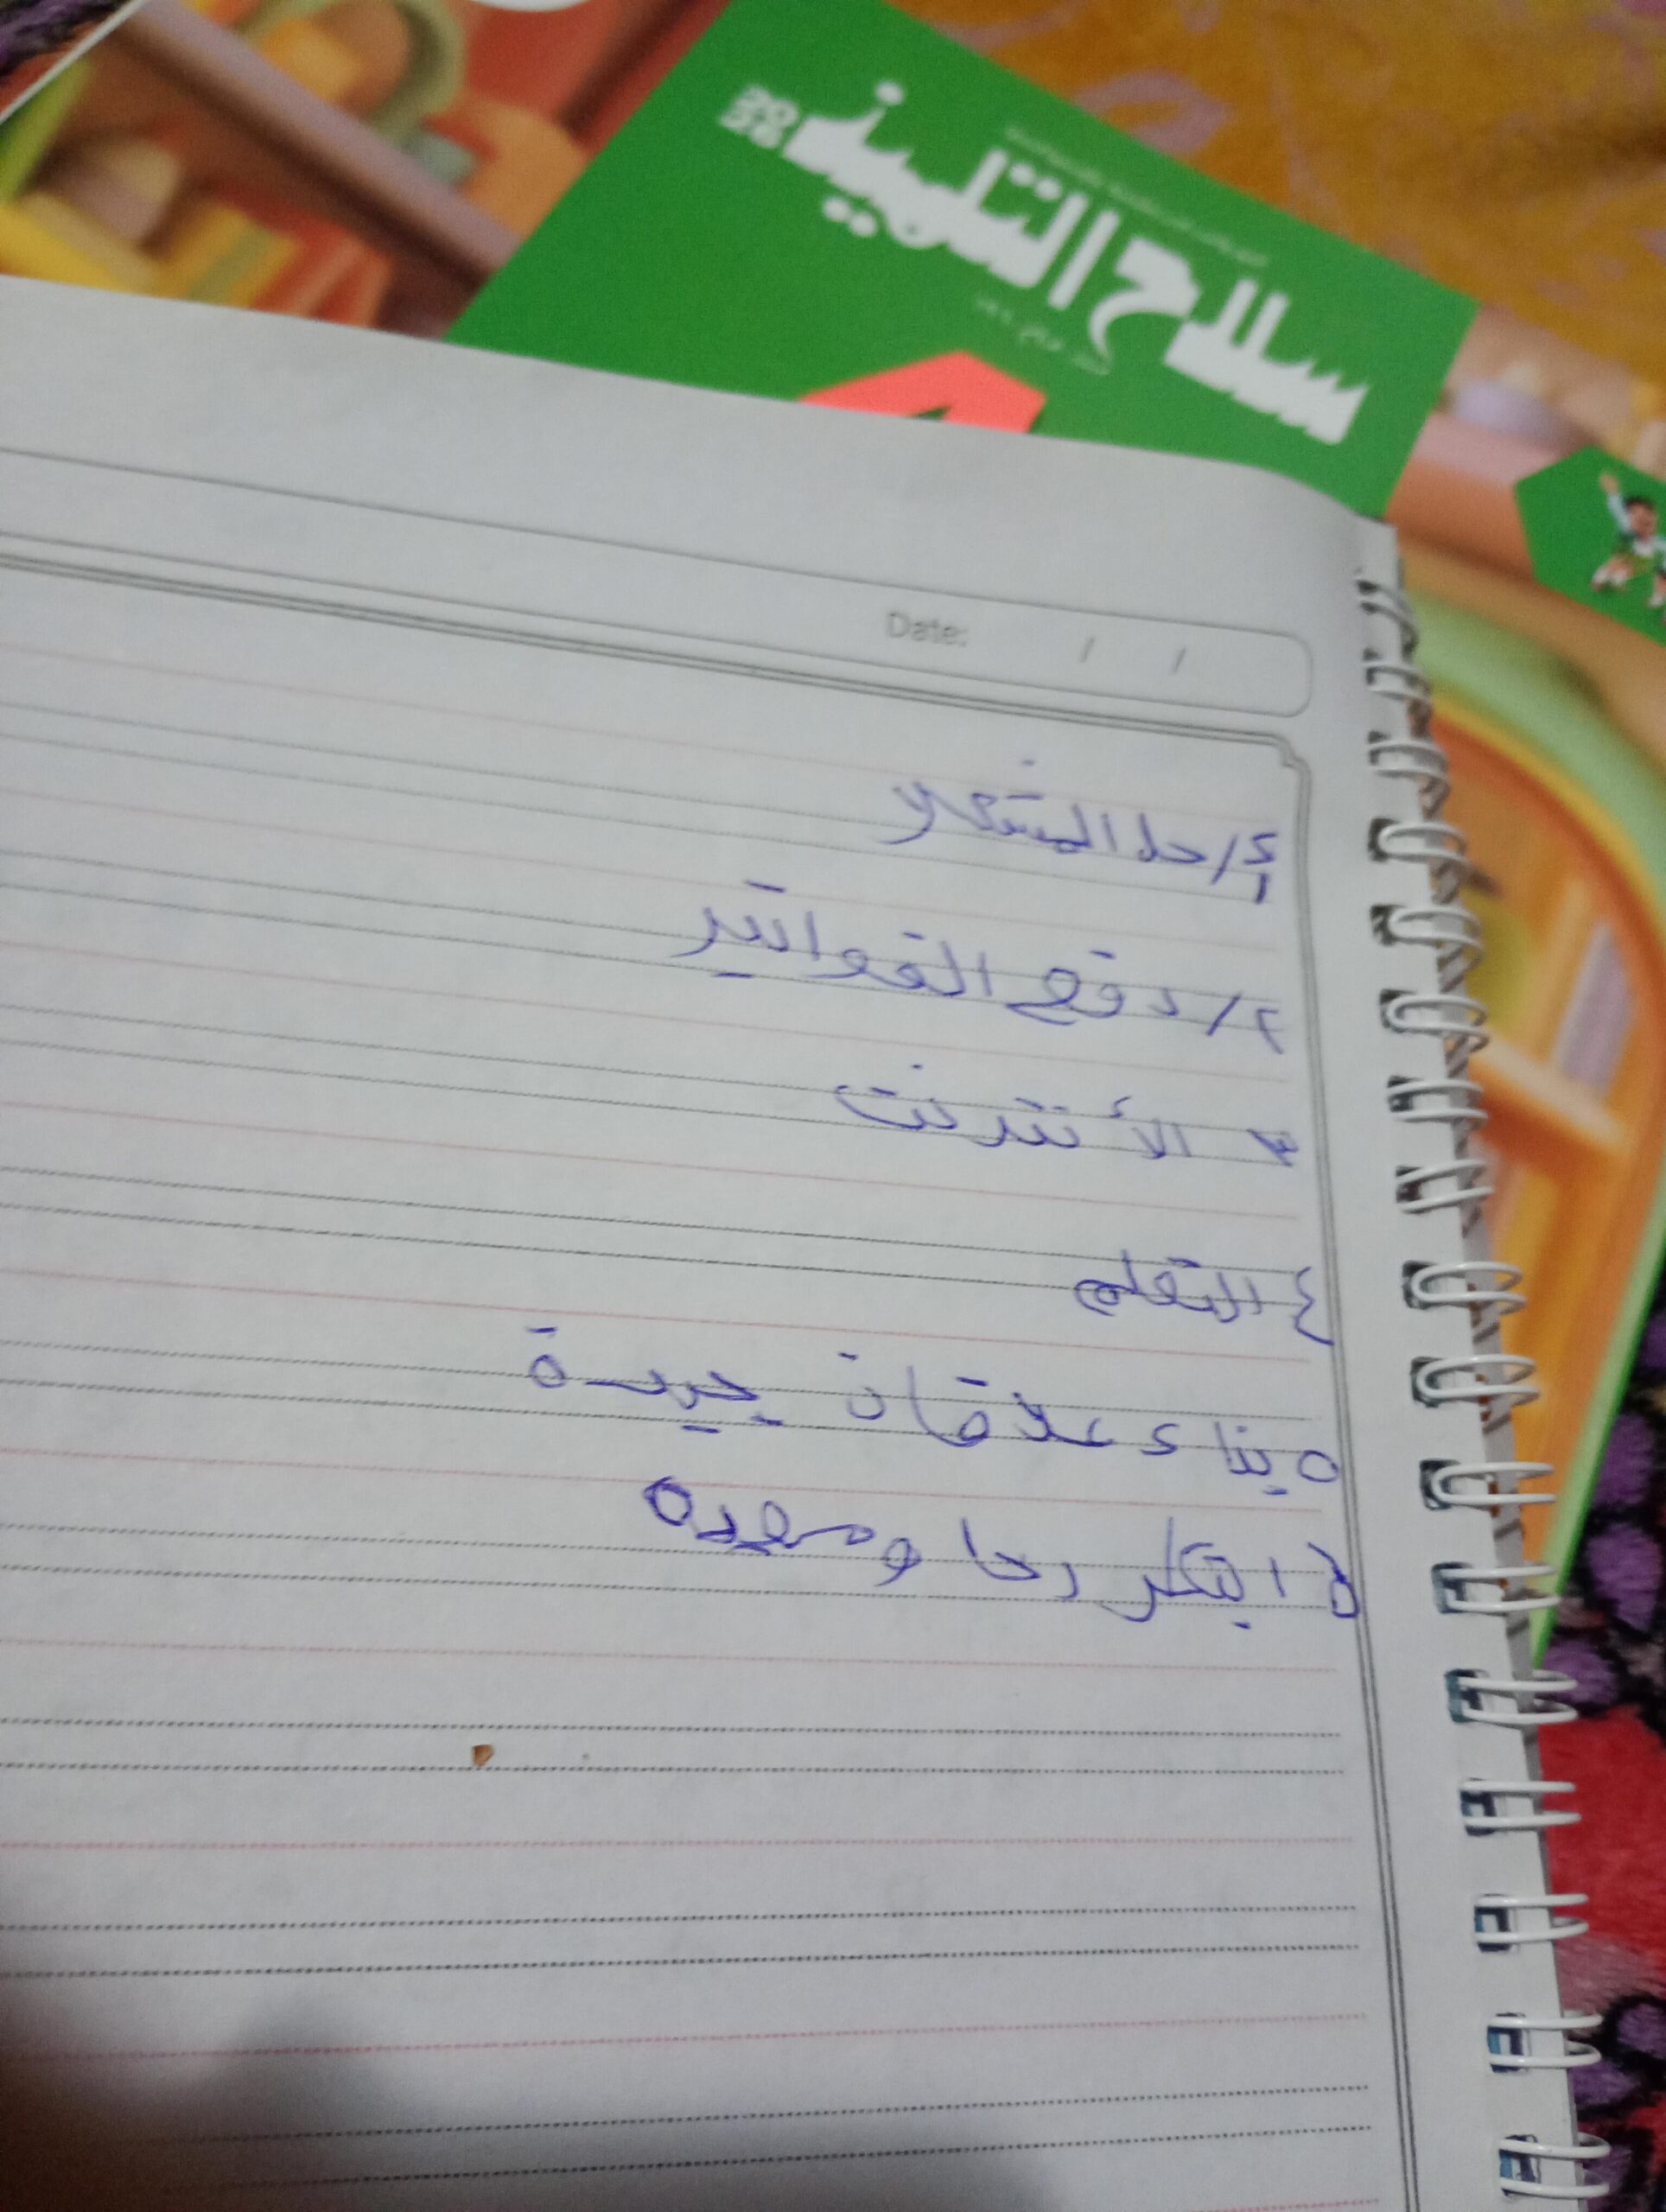 سلاح التلميذ
Date: / /
أ/ حل المشكلا
٢/ دفع الفواتير
٣ الأنترنت
٤ التعلم
٥ بناء علاقات جيدة
ابتكر